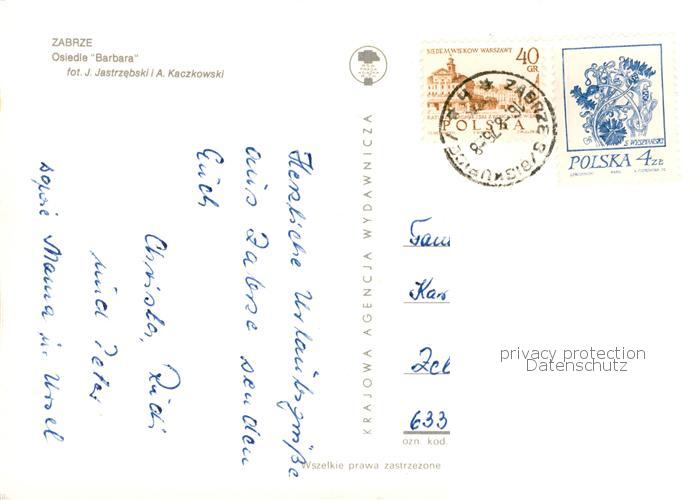 ZABRZE
Osiedle "Barbara"
fot. J. Jastrzębski i A. Kaczkowski
SIEDEM WIEKÓW WARSZAWY
40
GR
POLSKA
ZABRZE
S. WYSPIAŃSKI
POLSKA 4 ZŁ
KRAJOWA AGENCJA WYDAWNICZA
Herzliche Urlaubsgrüße
aus Zabrze senden
Euch
Christa, Rudi
und Peter
sowie Mama u. Ursel
Fam
Kar
Zel
633
ozn. kod.
Wszelkie prawa zastrzeżone
privacy protection
Datenschutz